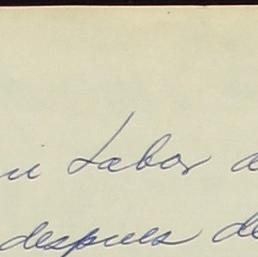 Labor
despues de